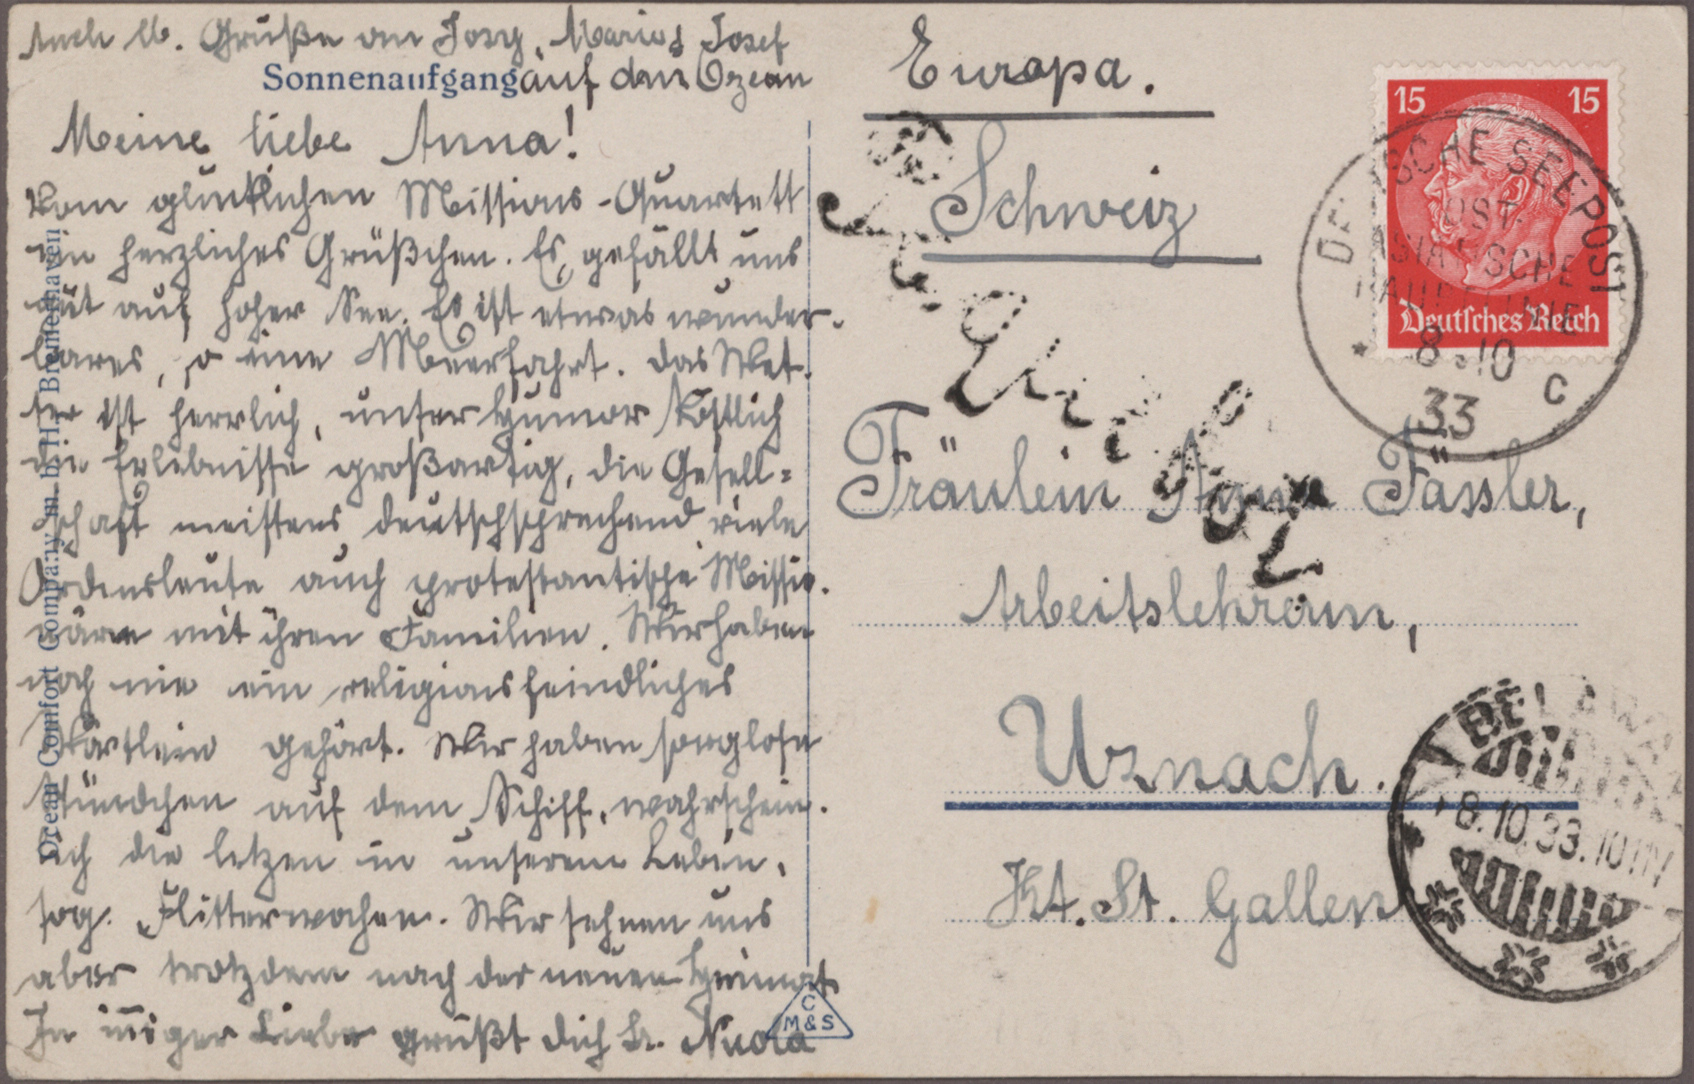 Auch lb. Grüße an Josy, Marie, Josef
Sonnenaufgang auf dem Ozean
Meine liebe Anna!
Vom glücklichen Missions-Quartett
ein herzliches Grüßchen. Es gefällt uns
gut auf hoher See. Es ist etwas wunder-
bares, so eine Meerfahrt. Das Wet-
ter ist herrlich, unser Humor köstlich
die Erlebnisse großartig, die Gesell=
schaft meistens deutschsprechend viele
Ordensleute auch protestantische Missio-
näre mit ihren Familien. Wir haben
noch nie ein religionsfeindliches
Wörtlein gehört. Wir haben sorglose
Stündchen auf dem Schiff, wahrschein-
lich die letzen in unserem Leben,
sog. Flitterwochen. Wir sehnen uns
aber trotzdem nach der neuen Heimat.
In inniger Liebe grüßt dich Sr.
Ocean Comfort Company m. b. H., Bremerhaven
C
M&S
Europa.
Schweiz
Fräulein Anna Fässler,
Arbeitslehrerin,
Uznach.
Kt. St. Gallen
15 15
Deutsches Reich
DEUTSCHE SEEPOST
OST-
ASIATISCHE
HAUPTLINIE
8.10
33
c
BELAWAN
8.10.33.10